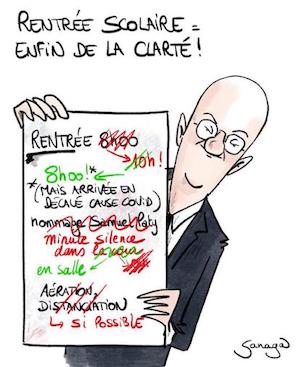 RENTRÉE SCOLAIRE =
ENFIN DE LA CLARTÉ !
RENTRÉE 8h00
10h !
8h00 !*
*(MAIS ARRIVÉE EN
DÉCALÉ CAUSE COVID)
hommage Samuel Paty
minute silence
dans la cour
en salle
AÉRATION,
DISTANCIATION
↳ SI POSSIBLE
Sanaga